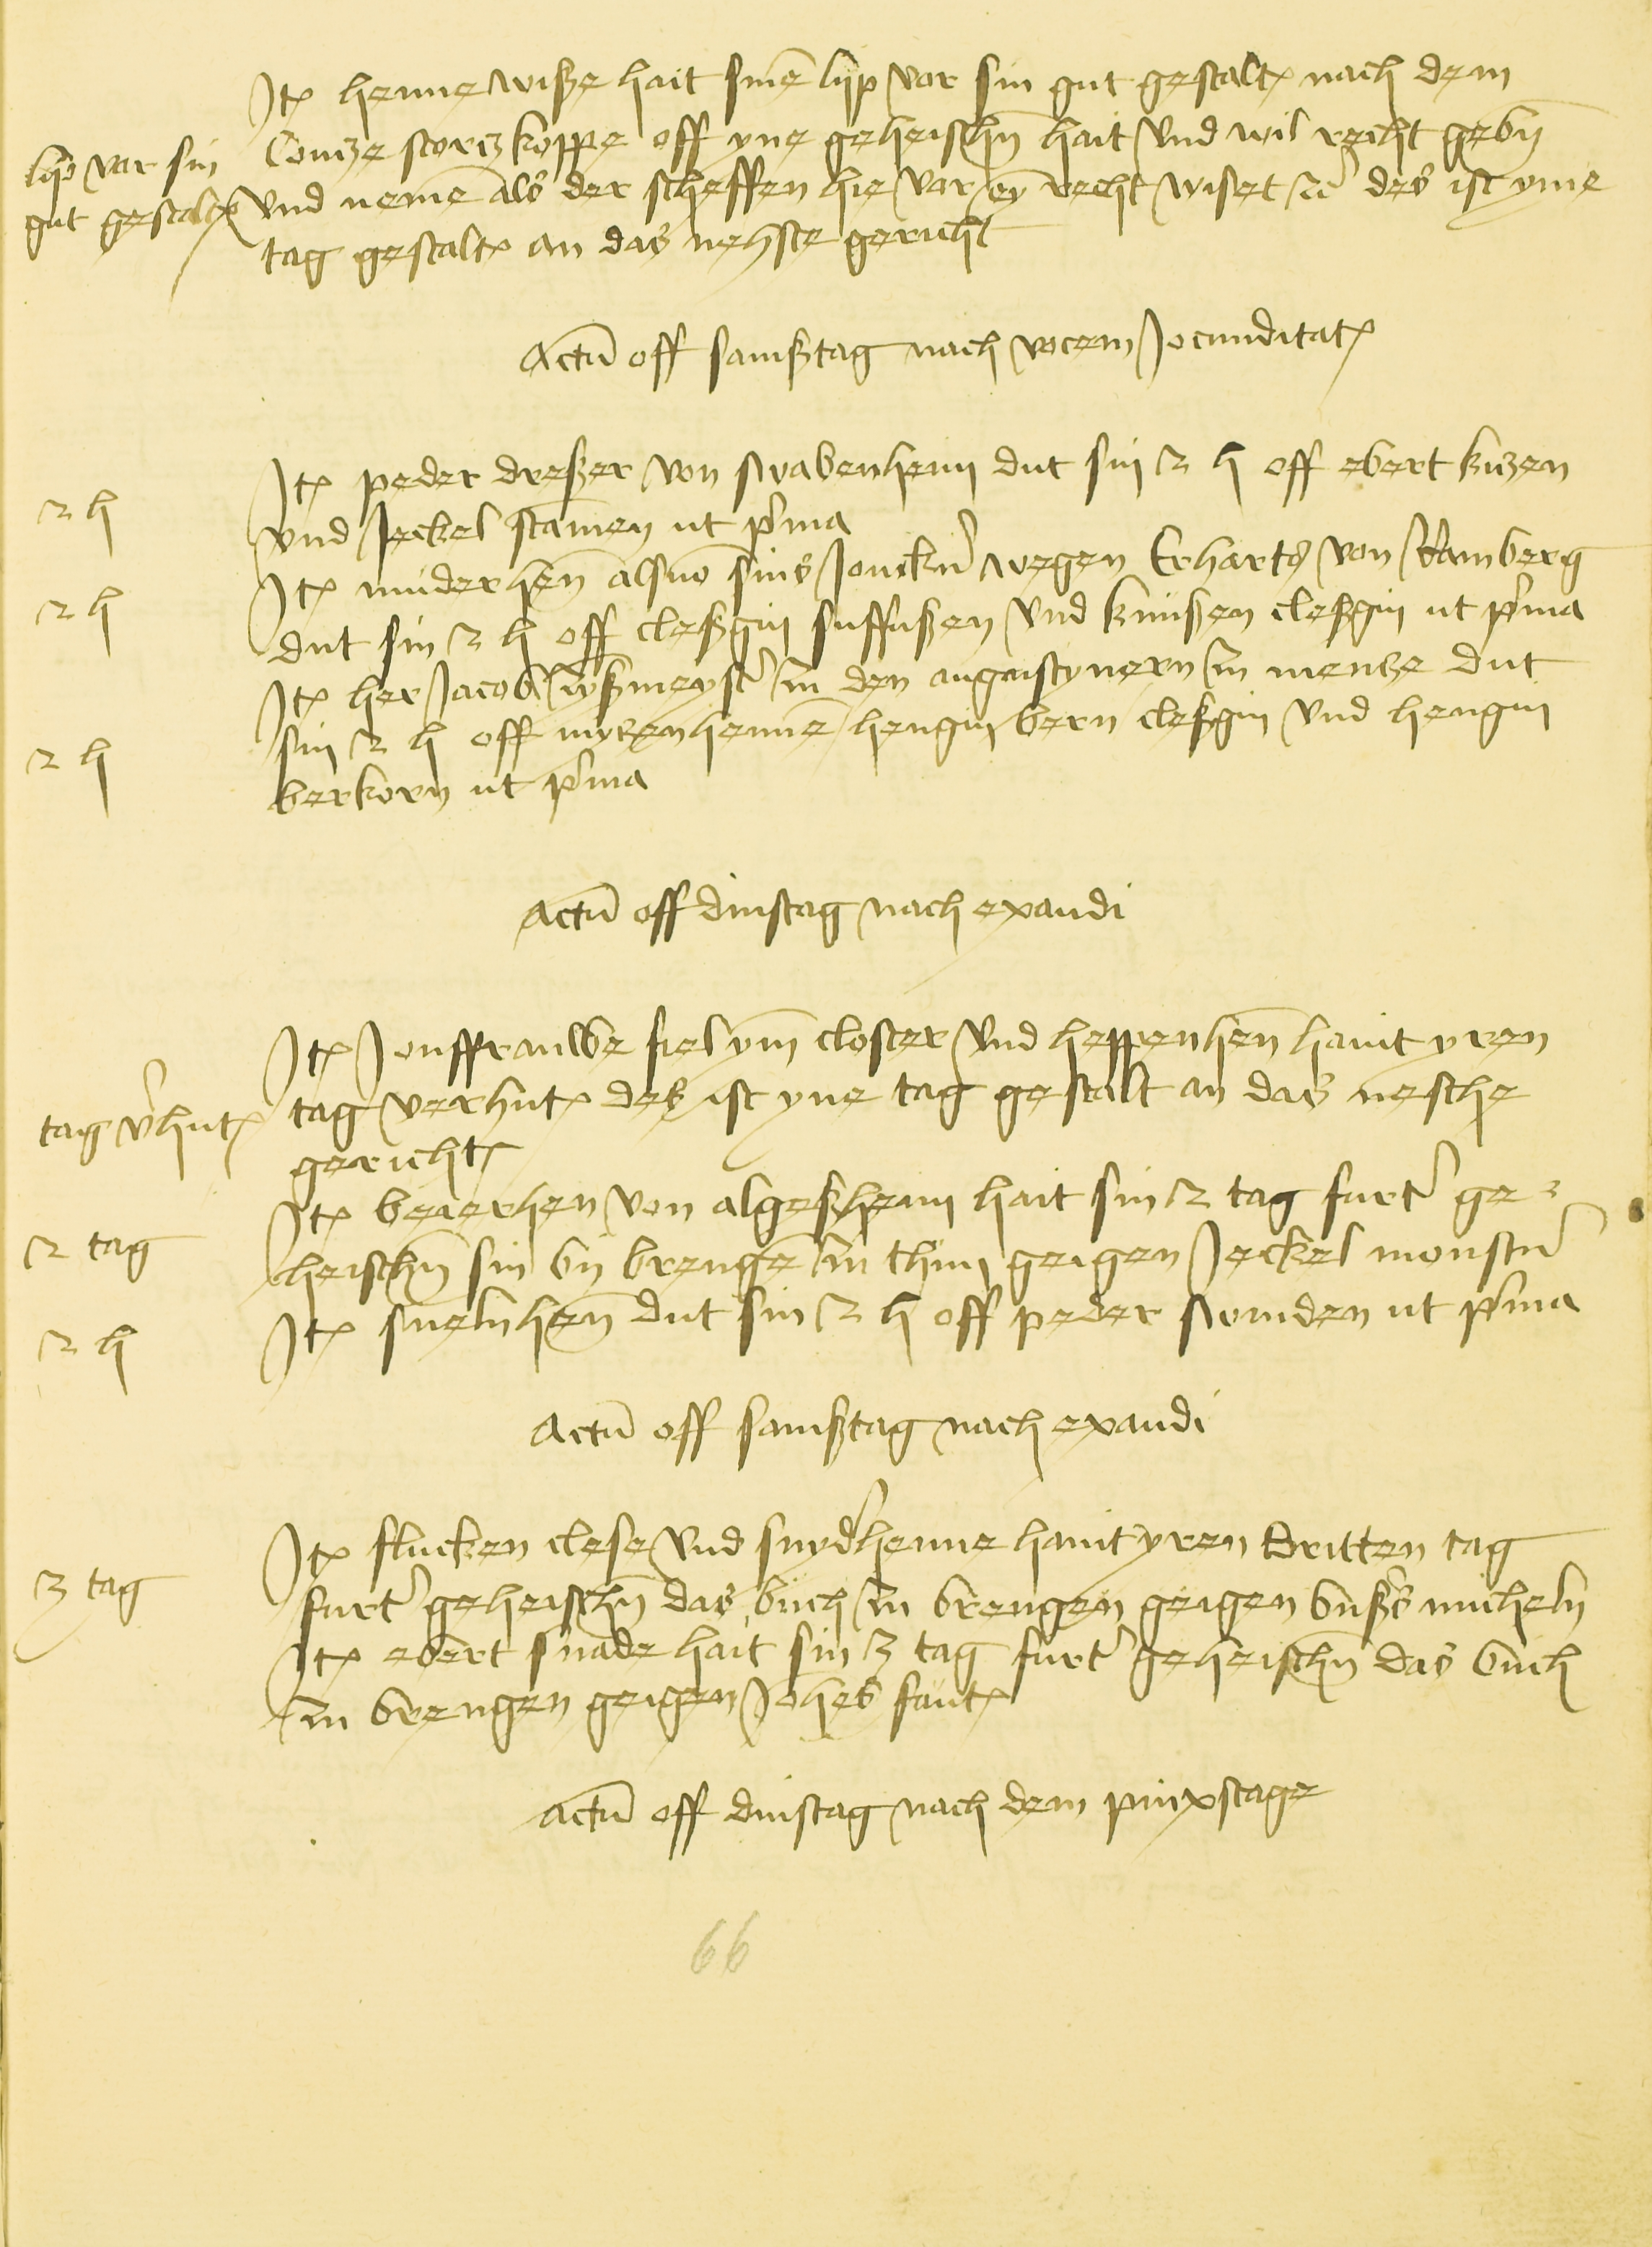 Jt(em) henne wiße hait sinē lyp vor sin gut gestalt nach dem
lyp vor sin
gut gestalt
Contze storczkoppe off yne geheischñ hait vnd wil recht gebñ
vnd nemē als der scheffen hie vor eȳ recht wiset rc̄ des ist yme
tag gestalt an das nehste gericht
Actū off samßtag nach vocem Jocunditat(is)
2 h
Jt(em) peder dreßer von swabenheim dut sin 2 h off ebert kiczen
vnd Jeckel stamen ut p(ri)ma
2 h
Jt(em) muderhen̄ als vō sins Jonckh(er) wegen Erharts von Ramberg
dut sin 2 h off cleßgin suffußen vnd knußen cleßgin ut p(ri)ma
2 h
Jt(em) her Jacob buwmeyst(er) zu den augustynern zu mentze dut
sin 2 h off mytzenhenne hengin bern cleßgin vnd hengin
berkorn ut p(ri)ma
Actū off dinstag nach exaudi
tag v(er)hut
Jt(em) Jonffrauwe fiel ym̄ closter vnd heppenhen̄ haint yren
tag verhut des ist yne tag gestalt an das nesthe
gericht
2 tag
Jt(em) beierhen von algeßheim hait sin 2 tag furt(er) ge-
heischñ sin by brengē zu thun geigen Jeckel monst(er)
2 h
Jt(em) snelnhen̄ dut sin 2 h off peder swinden ut p(ri)ma
Actū off samßtag nach exaudi
3 tag
Jt(em) flucken clese vnd snyd(er)henne haint yren dritten tag
furt(er) geheischñ das buch zu brengen geigen bußers micheln
Jt(em) ebert snade hait sin 3 tag furt(er) geheischñ das buch
zu brengen geigen Joh(ann)es faut
Actū off dinstag nach dem pinxstage
66